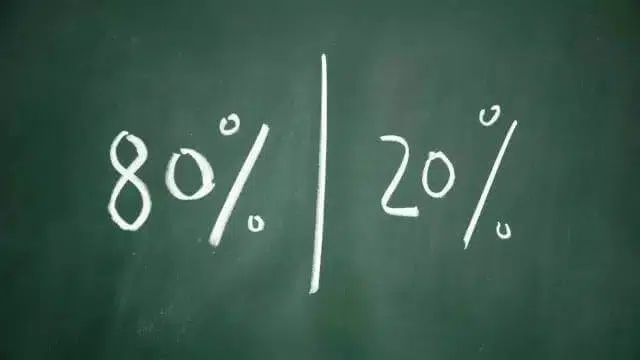 80% | 20%